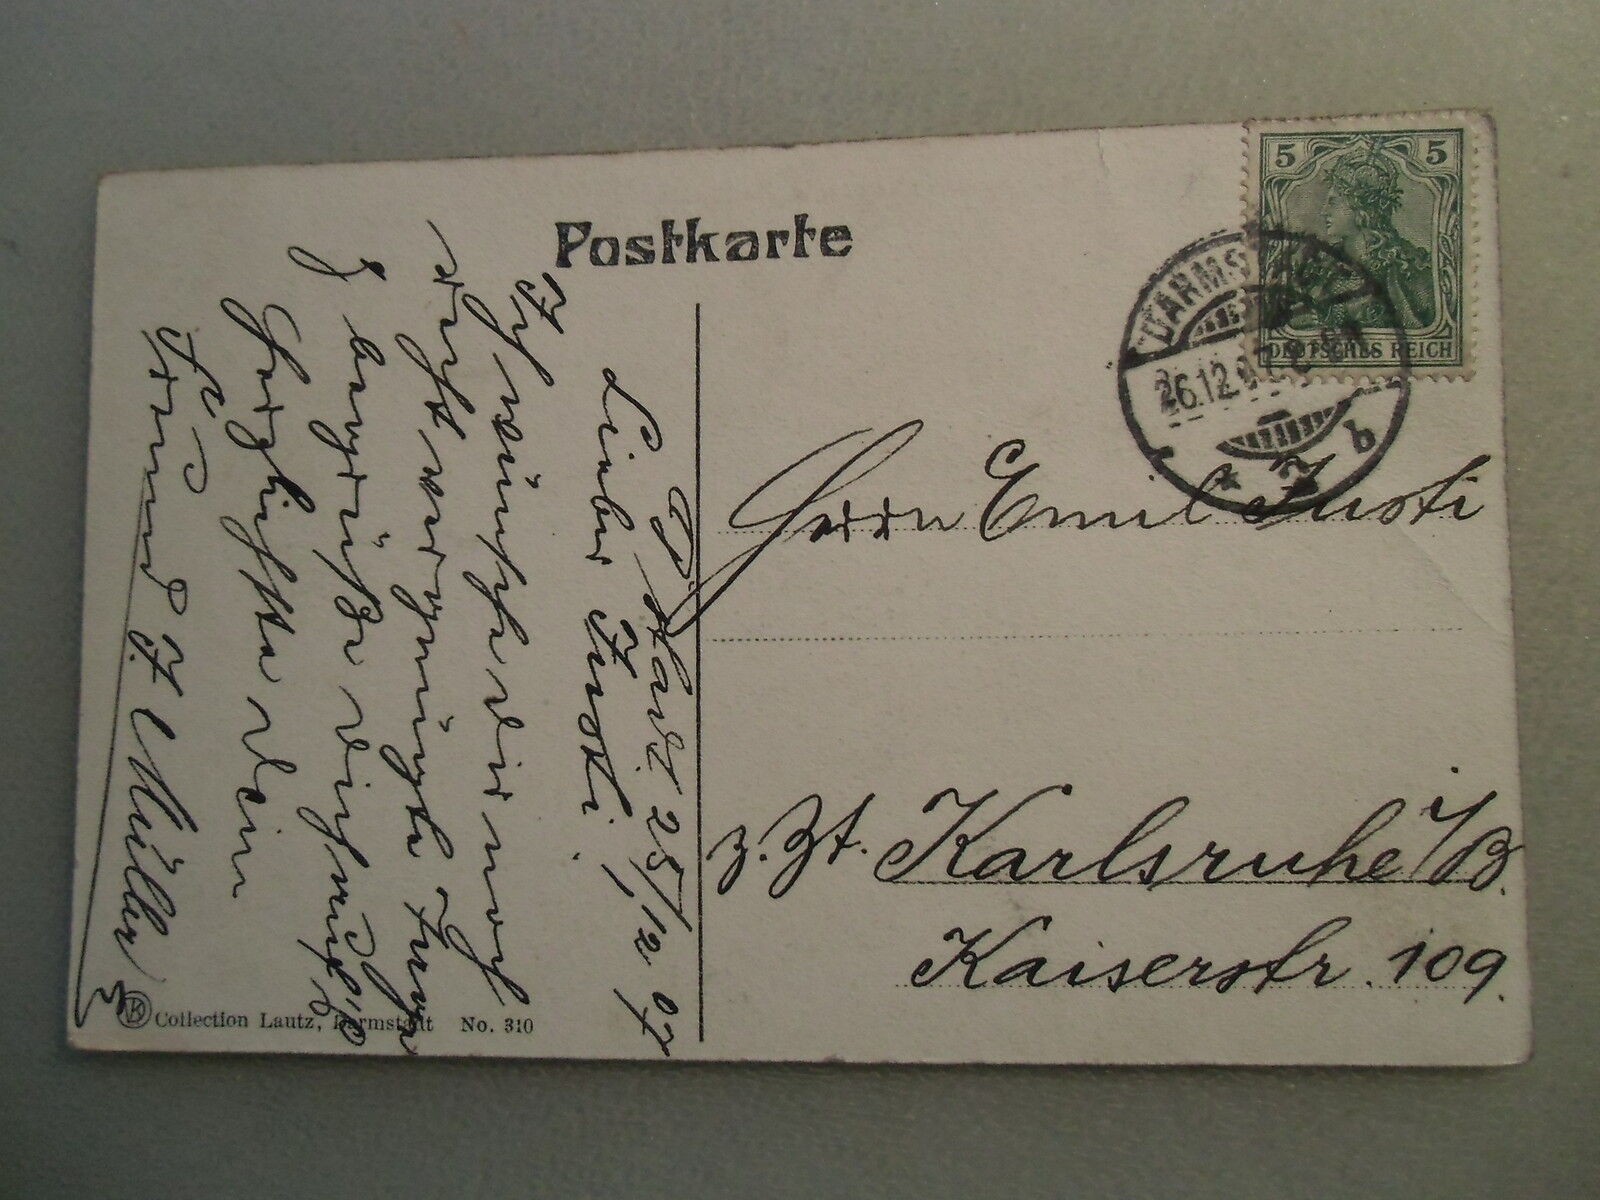 Postkarte
5 5
DEUTSCHES REICH
DARMSTADT
26.12.07
* 1 b
Herrn Emil Justi
z. Zt. Karlsruhe i/B.
Kaiserstr. 109.
D. stadt 25/12 07
Lieber Justi!
Ich wünsche dir noch
recht vergnügte
& begrüße dich
herzlichste dein
Freund F. Müller
Collection Lautz, Darmstadt No. 310